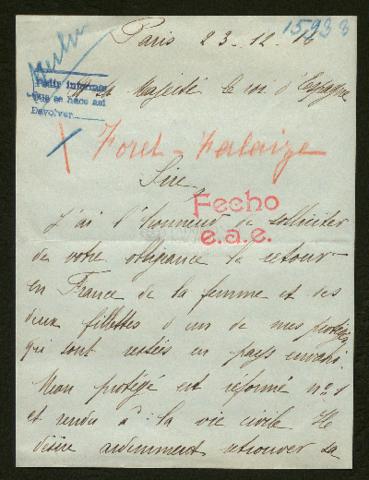 15933
Paris 23-12-16
A Sa Majesté le roi d'Espagne
Pedir informes
Que se hace así
Devolver
Foret-Falaize
Sire,
Fecho
e.a.e.
J'ai l'honneur de solliciter
de votre obligeance le retour
en France de la femme et des
deux fillettes d'un de mes protégés
qui sont restées en pays envahi.
Mon protégé est réformé nº 1
et rendu à la vie civile. Il
désire ardemment retrouver sa